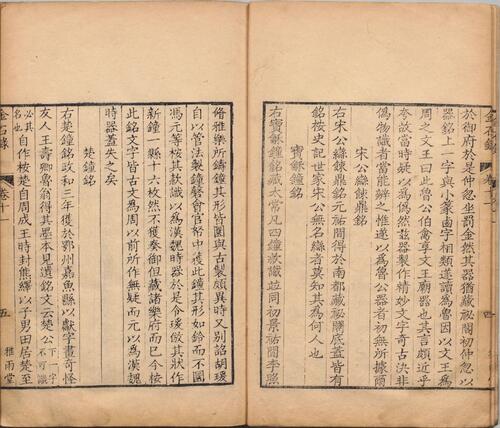 金石錄 卷十一 四
和御府於是仲忽坐罰金然其器猶藏祕閣初仲忽以
器銘上一字與小篆鹵字相類遂讀為魯因以文王為
周之文王曰此魯公伯禽享文王廟器也其言頗近乎
夸故當時疑以為偽然茲器製作精妙文字奇古決非
偽物識者當能辨之惟遂以為魯公器者初無所據爾
宋公䜌餗鼎銘
右宋公䜌餗鼎銘元祐間得於南都藏祕閣底蓋皆有
銘按史記世家宋公無名䜌者莫知其為何人也
寶龢鐘銘
右寶龢鐘銘藏太常凡四鐘款識並同初景祐間李照
脩雅樂所鑄鐘其形皆圓與古製頗異時又別詔胡瑗
自以管法製鐘磬會官帑中獲此鐘其形如鈴而不圓
馮元等按其款識以為漢魏時器於是令瑗倣其狀作
新鐘一縣十六枚然不獲奏御但藏諸樂府而已今按
此銘文字皆古文為周以前所作無疑而元以為漢魏
時器蓋失之矣
楚鐘銘
右楚鐘銘政和三年獲於鄂州嘉魚縣以獻字畫奇怪
友人王壽卿魯翁得其墨本見遺銘文云楚公下一字不可識
必其名也自作按楚自周成王時封熊繹以子男田居楚至
金石錄 卷十一 五 雅雨堂